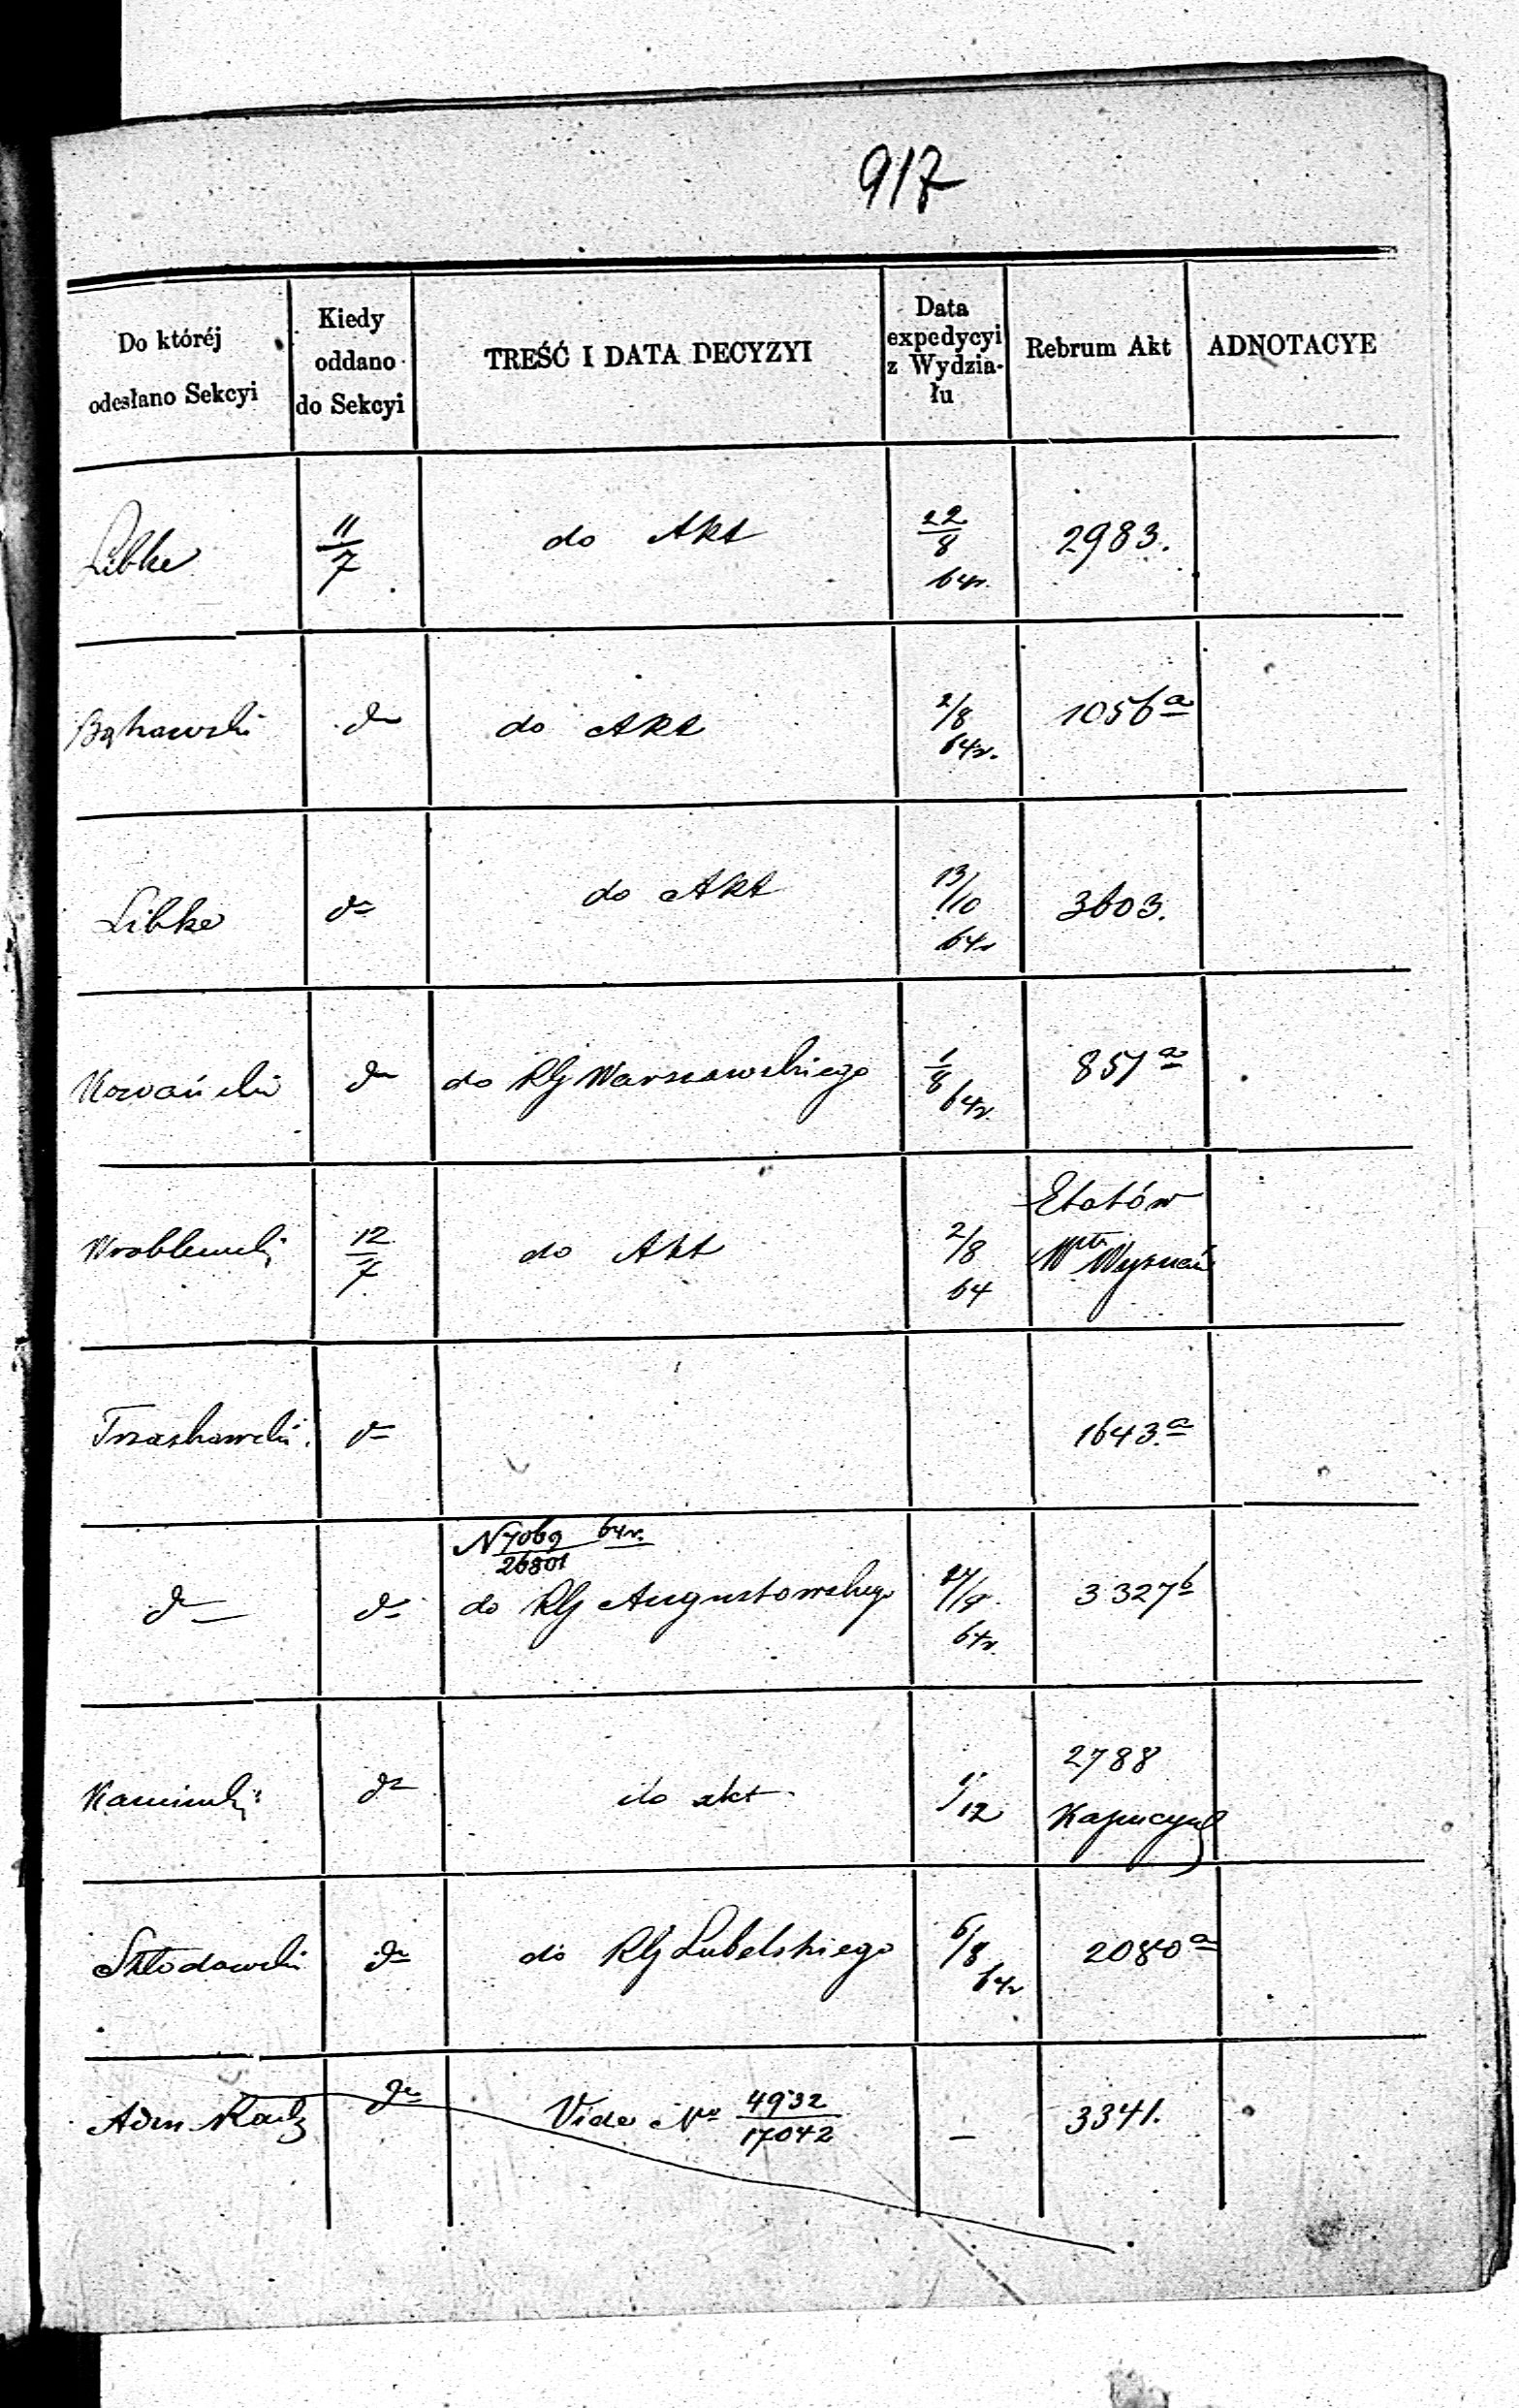 917
Do któréj odesłano Sekcyi | Kiedy oddano do Sekcyi | TREŚĆ I DATA DECYZYI | Data expedycyi z Wydzia-łu | Rebrum Akt | ADNOTACYE
Libke | 11/7 | do Akt | 22/8 64r. | 2983.
Bąkowski | do | do Akt | 2/8 64r. | 1056 a
Libke | do | do Akt | 13/10 64r | 3603.
do | do RG Warszawskiego | 1/8 64r. | 851 a
Wroblewski | 12/7 | do Akt | 2/8 64 | Etatów Wyznań
Trzaskowski. | do | 1643. a
N 7069/26801 64r.
do | do | do RG Augustowskiego | 64r. | 3327 b
Kamiński | do | do akt. | 1/12 | 2788 Kapucyni
Skłodowski | do | do RG Lubelskiego | 6/8 64r | 2080 a
Adm | do | Vide No 4932/17042 | — | 3341.